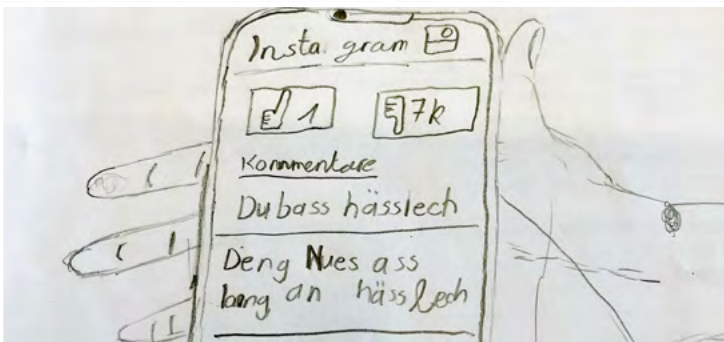 Insta. gram
1 7k
Kommentare
Du bass hässlech
Deng Nues ass
lang an hässlech